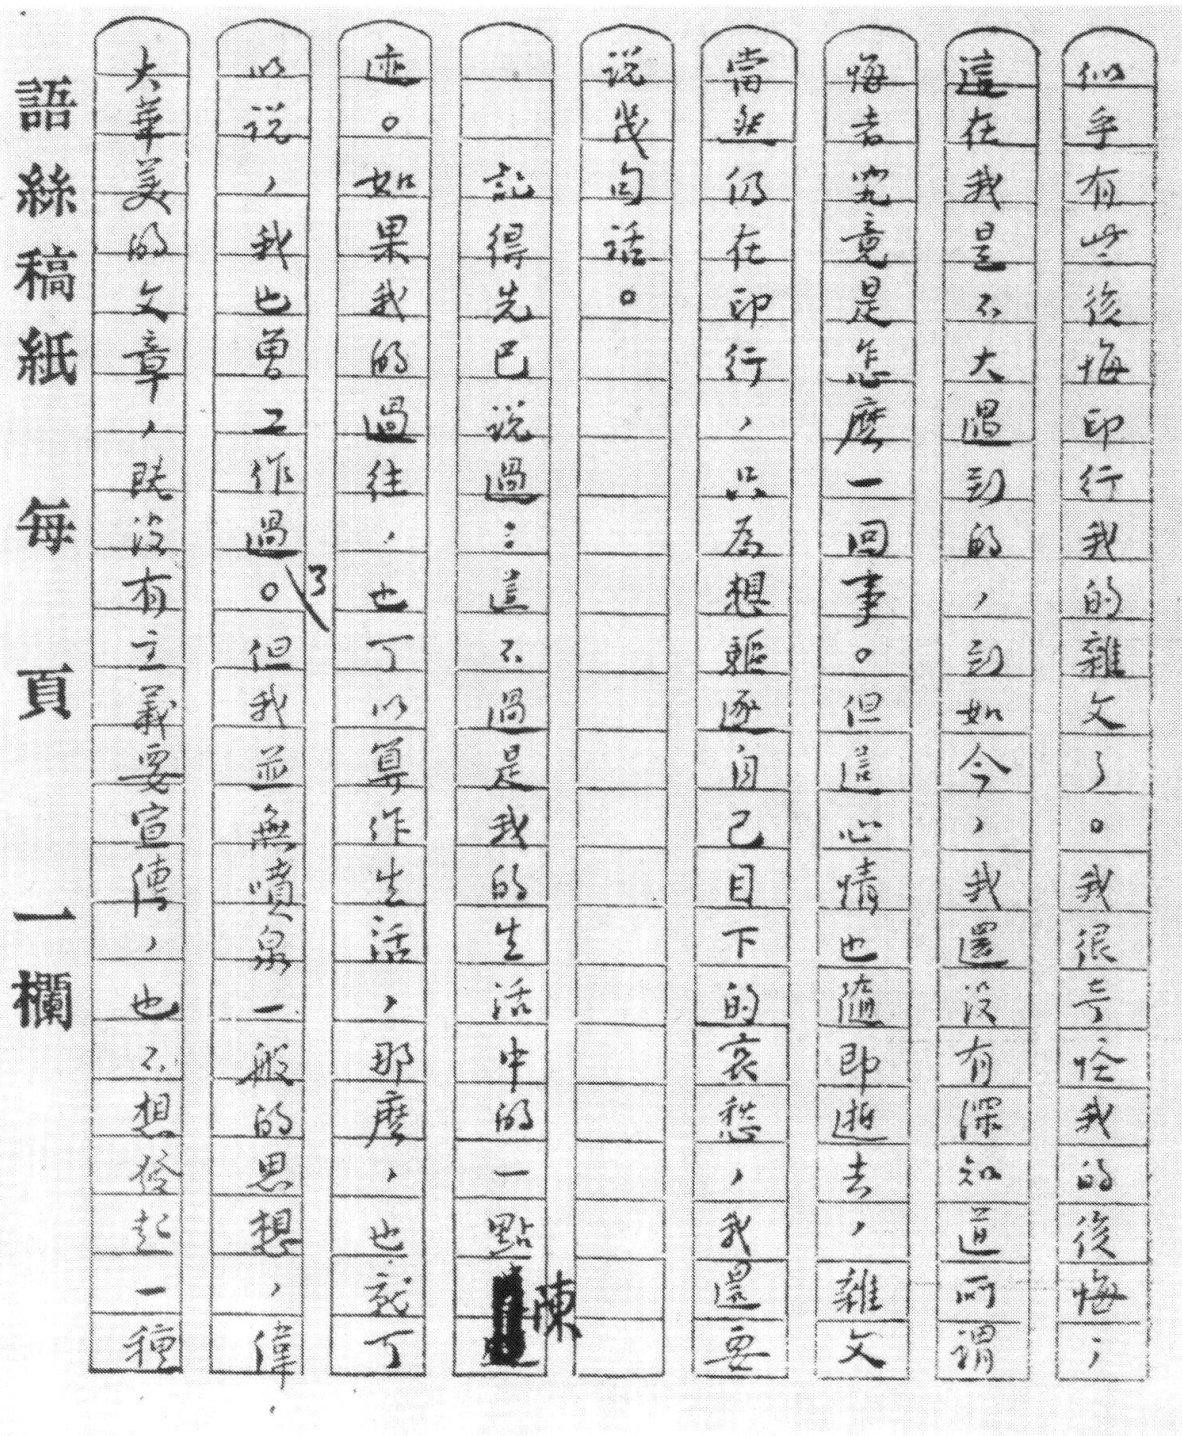 似乎有些後悔印行我的雜文了。我很奇怪我的後悔；
這在我是不大遇到的，到如今，我還沒有深知道所謂
悔者究竟是怎麼一回事。但這心情也隨即逝去，雜文
當然仍在印行，只為想驅逐自己目下的哀愁，我還要
说幾句話。
記得先已说過：這不過是我的生活中的一點陳
迹。如果我的過往，也可以算作生活，那麼，也就可
以说，我也曾工作過了。但我並無噴泉一般的思想，偉
大華美的文章，既沒有主義要宣傳，也不想發起一種
語絲稿紙 每頁一欄